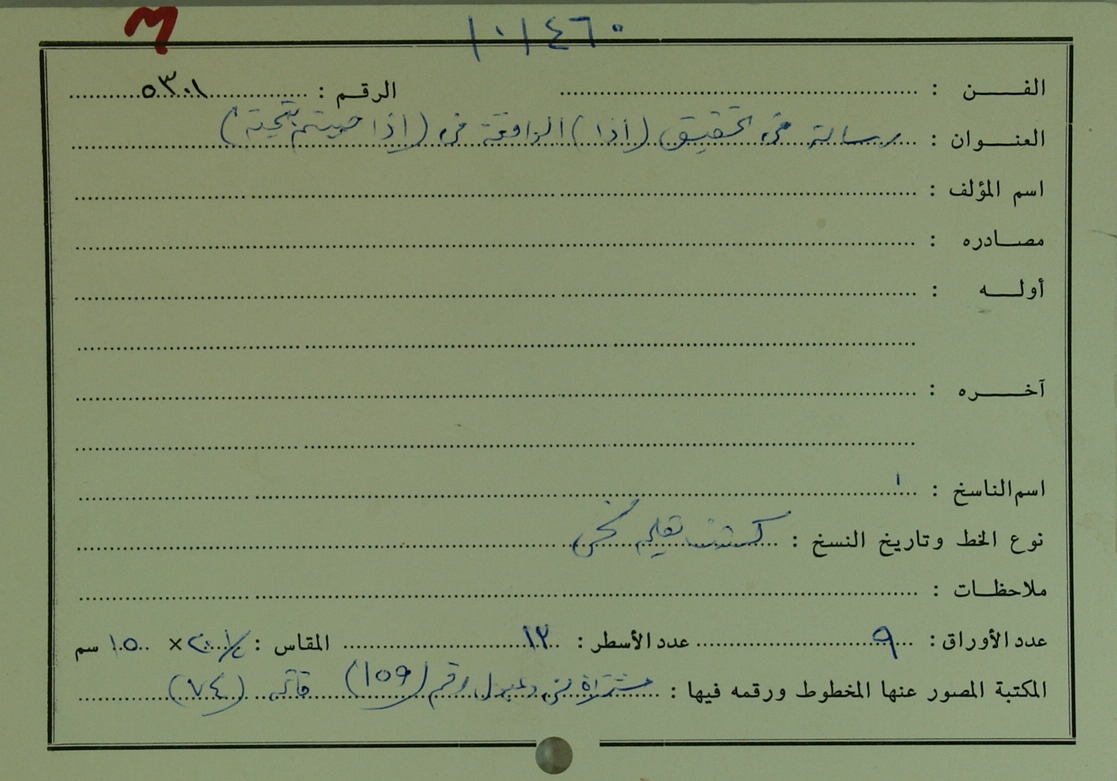 M
١٠١٤٦٠
الفـن : الرقـم : ٥٣٠١
العنـوان : رسالة في تحقيق (إذا) الواقعة في (إذا حييتم بتحية)
اسم المؤلف :
مصـادره :
أولـه :
آخـره :
اسم الناسخ :
نوع الخط وتاريخ النسخ : كتبت بقلم نسخي
ملاحظـات :
عدد الأوراق : ٩ عدد الأسطر : ١٢ المقاس : × ١٥ سم
المكتبة المصور عنها المخطوط ورقمه فيها : مشتراة رقم (١٥٩) قائمة (٧٤)